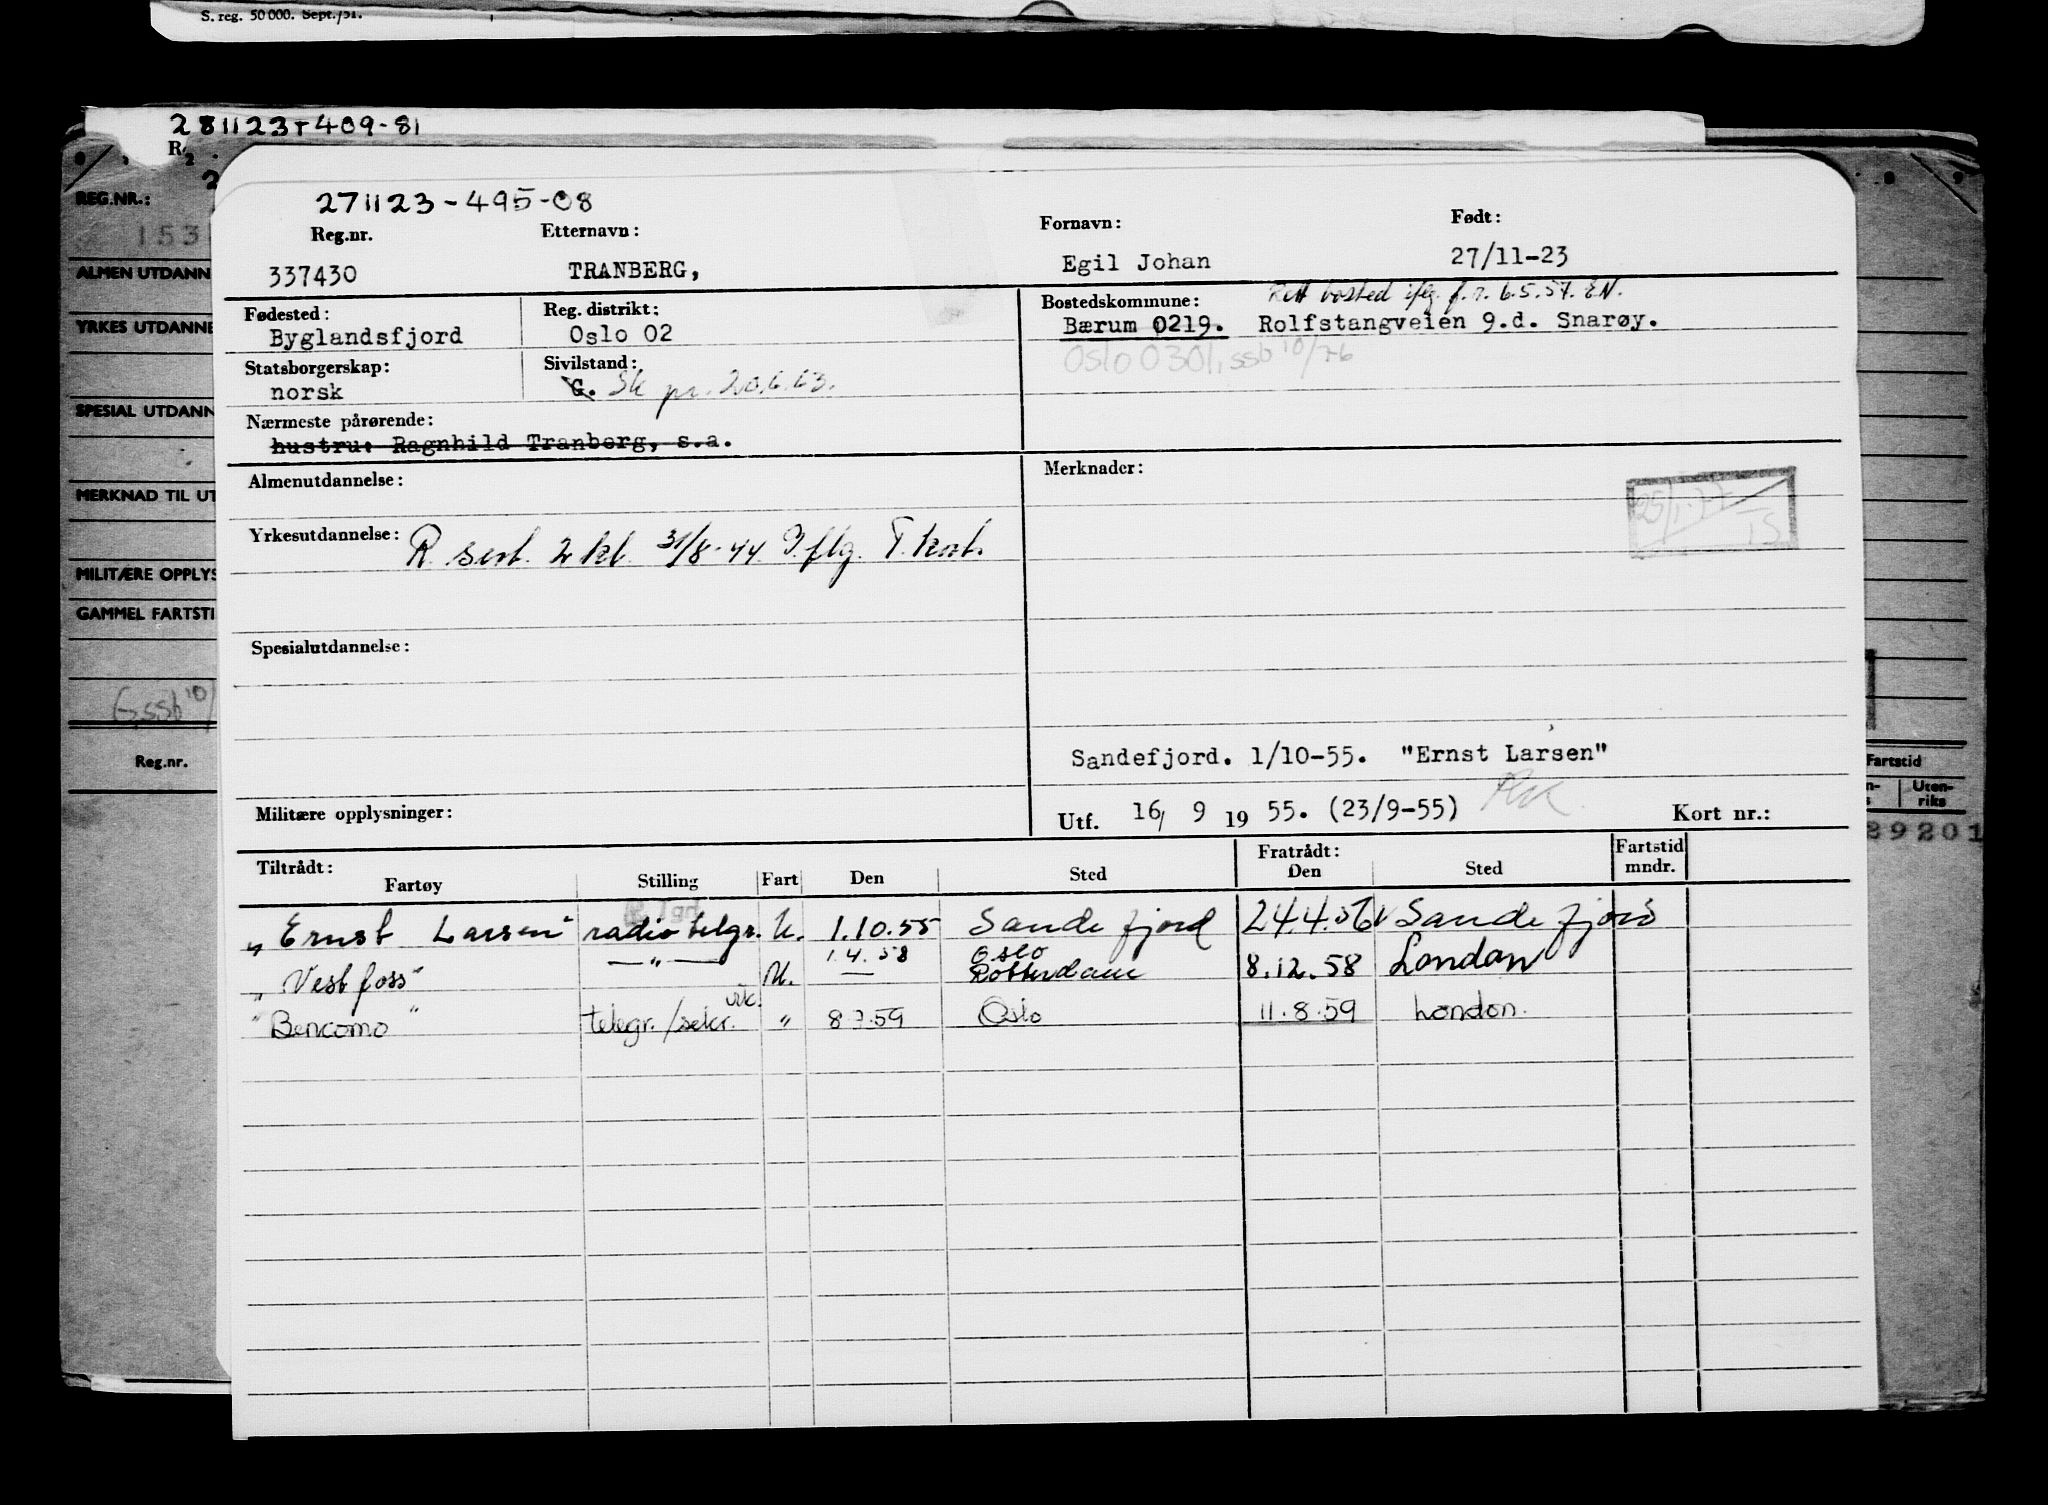 S. reg. 50 000. Sept./51.
281123+409-81
REG.NR.:
ALMEN UTDANN
YRKES UTDANNE
SPESIAL UTDANN
MERKNAD TIL UT
MILITÆRE OPPLYS
GAMMEL FARTSTI
G, ssb 10/
Reg.nr.
271123-495-08
Reg.nr. Etternavn: Fornavn: Født:
337430 TRANBERG, Egil Johan 27/11-23
Fødested: Reg. distrikt: Bostedskommune: Rett bosted iflg. f.r. 6.5.57. EN.
Byglandsfjord Oslo 02 Bærum 0219. Rolfstangveien 9.d. Snarøy.
Statsborgerskap: Sivilstand: Oslo 0301, ssb 10/76
norsk G. Sk pr. 20.6.63.
Nærmeste pårørende:
hustru: Ragnhild Tranberg, s.a.
Almenutdannelse: Merknader:
25/1-77 TS
Yrkesutdannelse: R. sert. 2 kl. 31/8-44. Iflg. T. kort.
Spesialutdannelse:
Sandefjord. 1/10-55. "Ernst Larsen"
Militære opplysninger: Utf. 16/ 9 19 55. (23/9-55) Kort nr.:
Fartstid
Uten-
riks
89201
Tiltrådt: Fratrådt: Fartstid
Fartøy Stilling Fart Den Sted Den Sted mndr.
"Ernst Larsen" radiotelgr. U. 1.10.55 Sandefjord 24.4.56 Sandefjord
1.4.58 Oslo
"Vestfoss" —"— U. — Rotterdam 8.12.58 London
vik.
"Bencomo" telegr./sekr. " 8.7.59 Oslo 11.8.59 London.